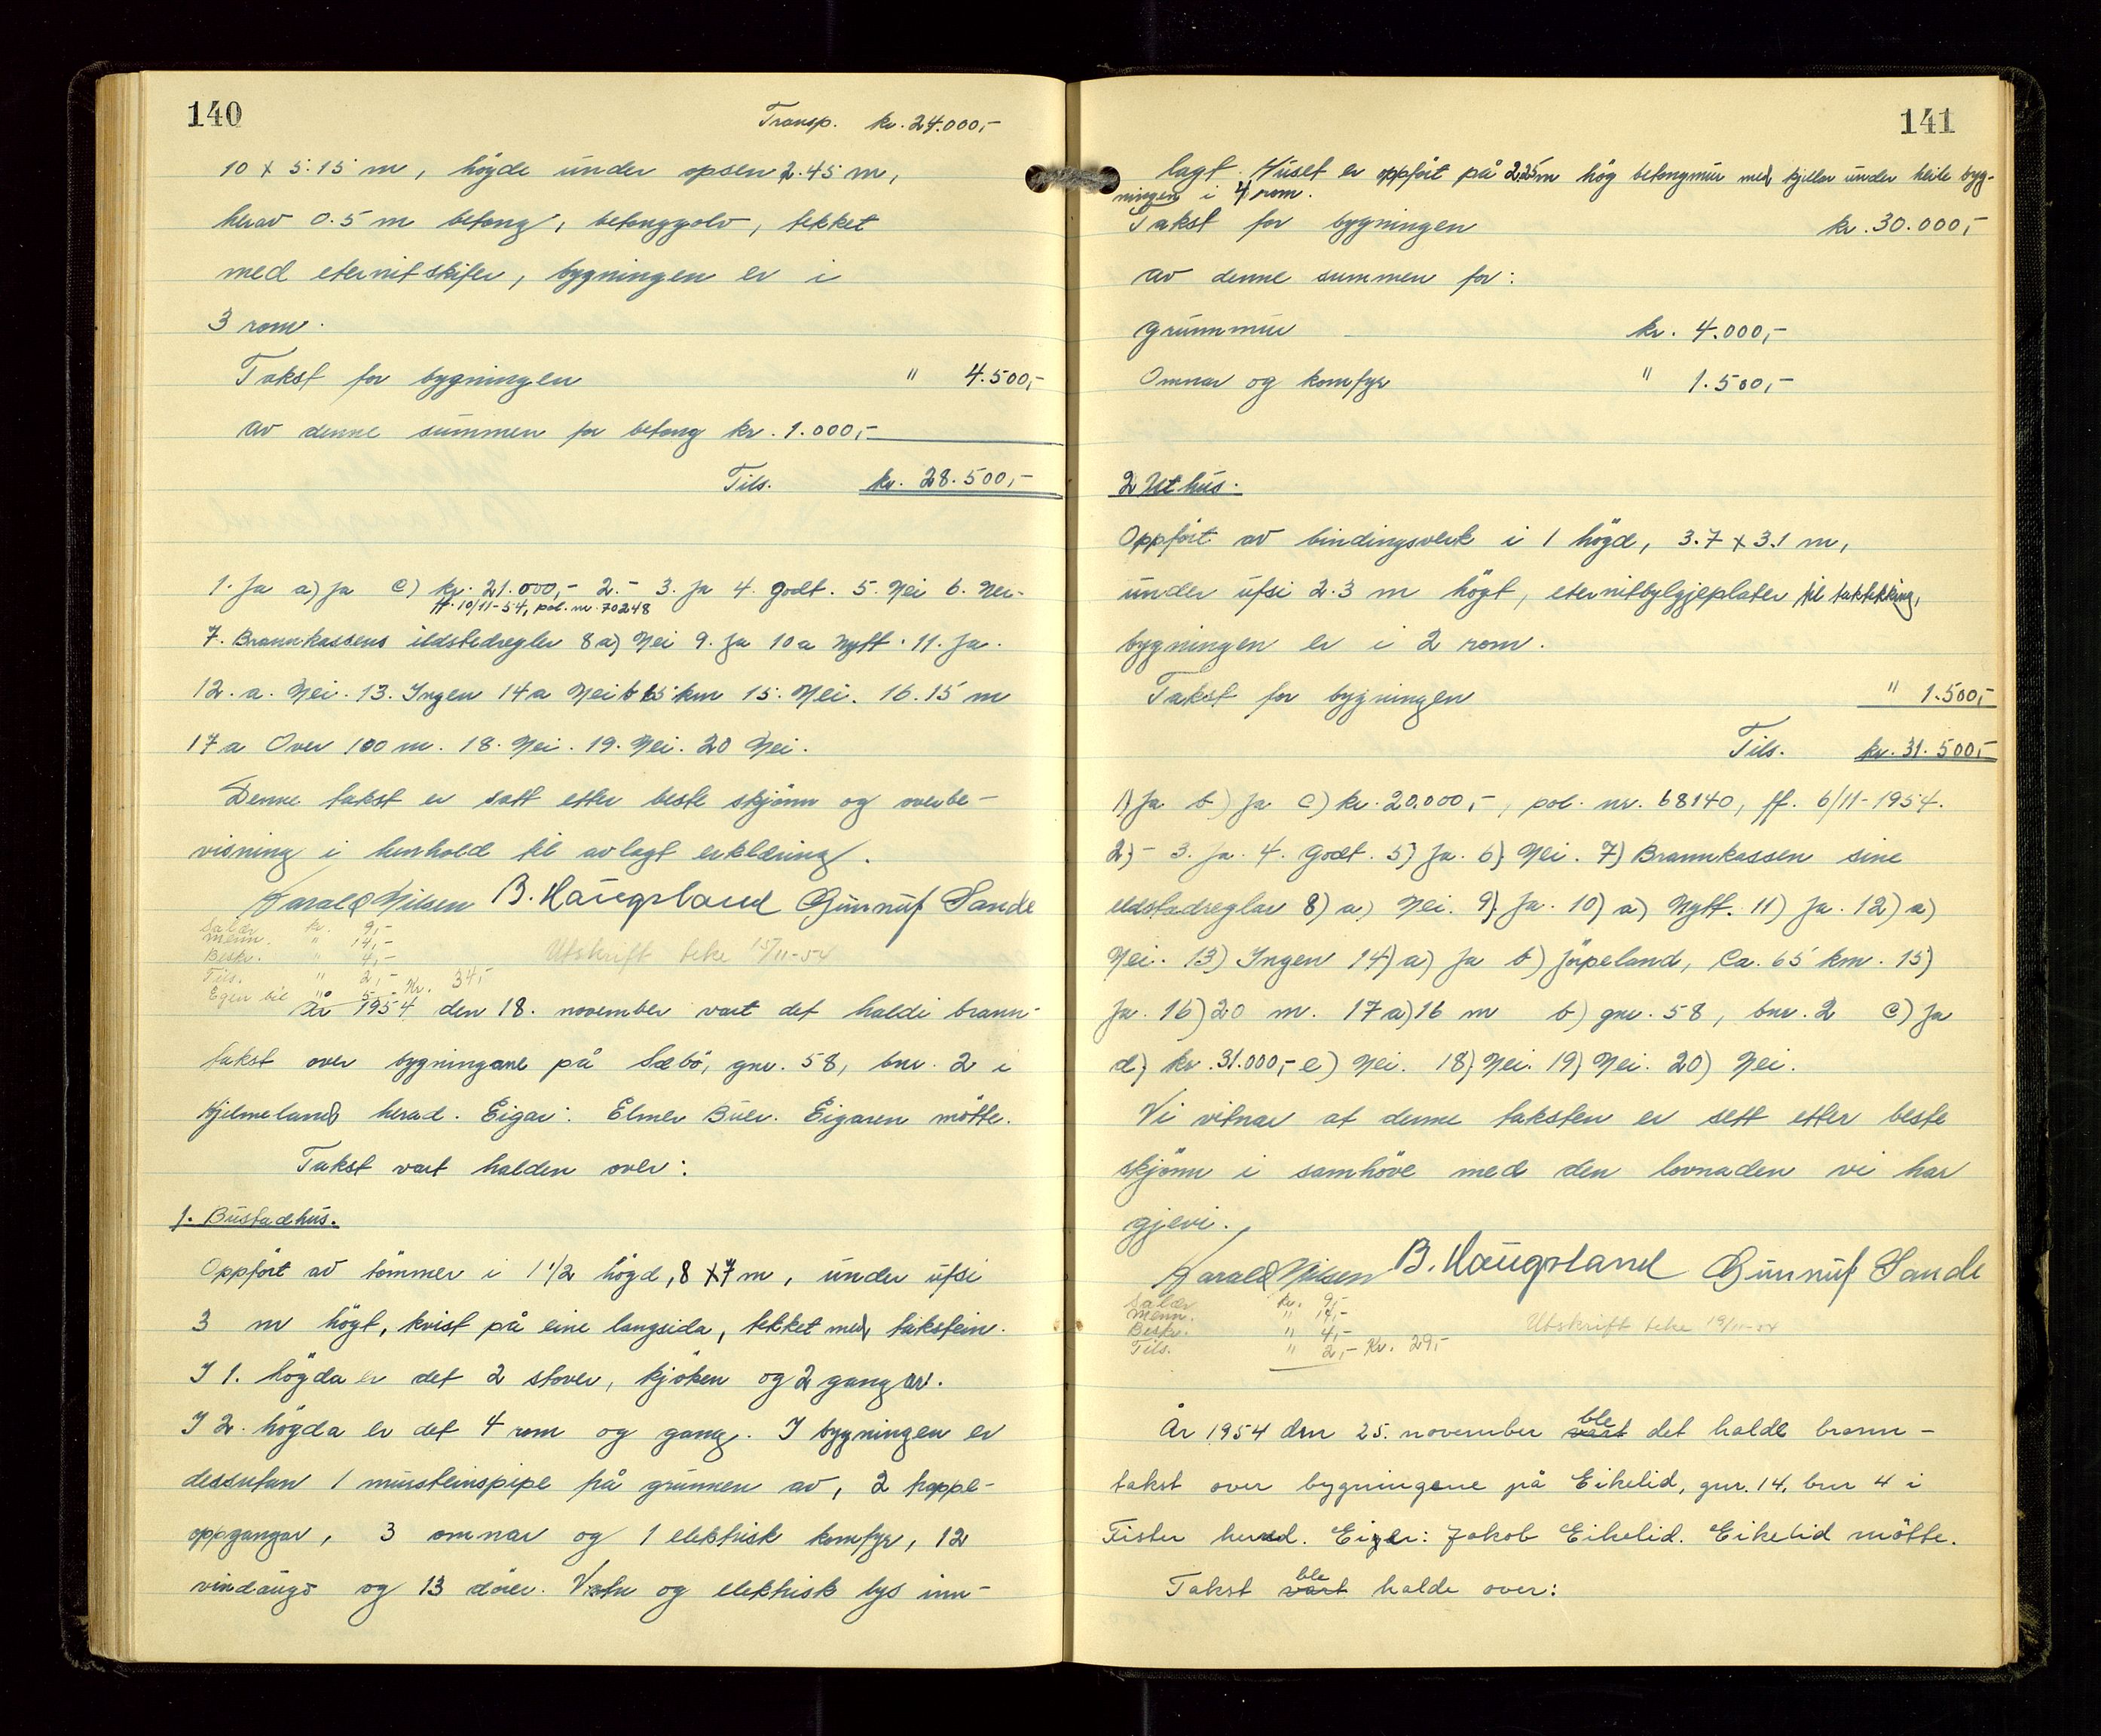 140
Transp. kr. 24.000,-
10 x 5.15 m, högde under opsen 2.45 m,
herav 0.5 m betong, betonggolv, tekket
med eternitskifer, bygningen er i
3 rom.
Takst for bygningen " 4.500,-
av denne summen for betong kr. 1.000,-
Tils. kr. 28.500,-
1. Ja a) Ja c) kr. 21.000,- 2.- 3. Ja 4. Godt. 5. Nei 6. Nei.
ff. 10/11-54, pol. nr. 70248
7. Brannkassens ildstedregler 8 a) Nei 9. Ja 10 a Nytt. 11. Ja.
12. a. Nei. 13. Ingen 14 a Nei b 65 km 15. Nei. 16. 15 m
17 a Over 100 m. 18. Nei. 19. Nei. 20 Nei.
Denne takst er satt etter beste skjönn og overbe-
visning i henhold til avlagt erklæring.
Harald Nilsen B. Haugsland Gunnuf Sande
Salær kr. 9,-
Menn. " 14,-
Beskr. " 4,- Utskrift teke 15/11-54
Tils. " 2,-
Egen bil " 5,- Kr. 34,-
År 1954 den 18. november vart det haldi brann-
takst over bygningane på Sæbö, gnr. 58, bnr. 2 i
Hjelmeland herad. Eigar: Elmer Buer. Eigaren mötte.
Takst vart halden over:
1. Bustadhus.
Oppfört av tömmer i 1 1/2 högd, 8 x 7 m, under ufsi
3 m högt, kvist på eine langsida, tekket med takstein.
I 1. högda er det 2 stover, kjöken og 2 gangar.
I 2. högda er det 4 rom og gang. I bygningen er
dessutan 1 mursteinspipe frå grunnen av, 2 trappe-
oppgangar, 3 omnar og 1 elektrisk komfyr, 12
vindaugo og 13 dörer. Vatn og elektrisk lys inn-
141
lagt. Huset er oppfört på 2.25 m hög betongmur med kjellar under heile byg-
ningen i 4 rom.
Takst for bygningen kr. 30.000,-
av denne summen for:
grunnmur kr. 4.000,-
Omnar og komfyr " 1.500,-
2 Uthus.
Oppfört av bindingsverk i 1 högd, 3.7 x 3.1 m,
under ufsi 2.3 m högt, eternitbylgjeplater til taktekking,
bygningen er i 2 rom.
Takst for bygningen " 1.500,-
Tils. kr. 31.500,-
1) Ja b) Ja c) kr. 20.000,-, pol. nr. 68140, ff. 6/11-1954.
2)- 3. Ja. 4. Godt. 5) Ja. 6) Nei. 7) Brannkassen sine
eldstadreglar 8) a) Nei. 9) Ja. 10) a) Nytt. 11) Ja. 12) a)
Nei. 13) Ingen 14) a) Ja b) Jörpeland, Ca. 65 km. 15)
Ja. 16) 20 m. 17 a) 16 m b) gnr. 58, bnr. 2 c) Ja
d) kr. 31.000,- e) Nei. 18) Nei. 19) Nei. 20) Nei.
Vi vitnar at denne taksten er sett etter beste
skjönn i samhöve med den lovnaden vi har
gjevi.
Harald Nilsen B. Haugsland Gunnuf Sande
Salær kr. 9,-
Menn. " 14,-
Beskr. " 4,- Utskrift teke 19/11-54
Tils. " 2,- Kr. 29,-
År 1954 den 25. november vart ble det halde brann-
takst over bygningene på Eikelid, gnr. 14, bnr 4 i
Fister herad. Eiger: Jakob Eikelid. Eikelid mötte.
Takst vart ble halde over: